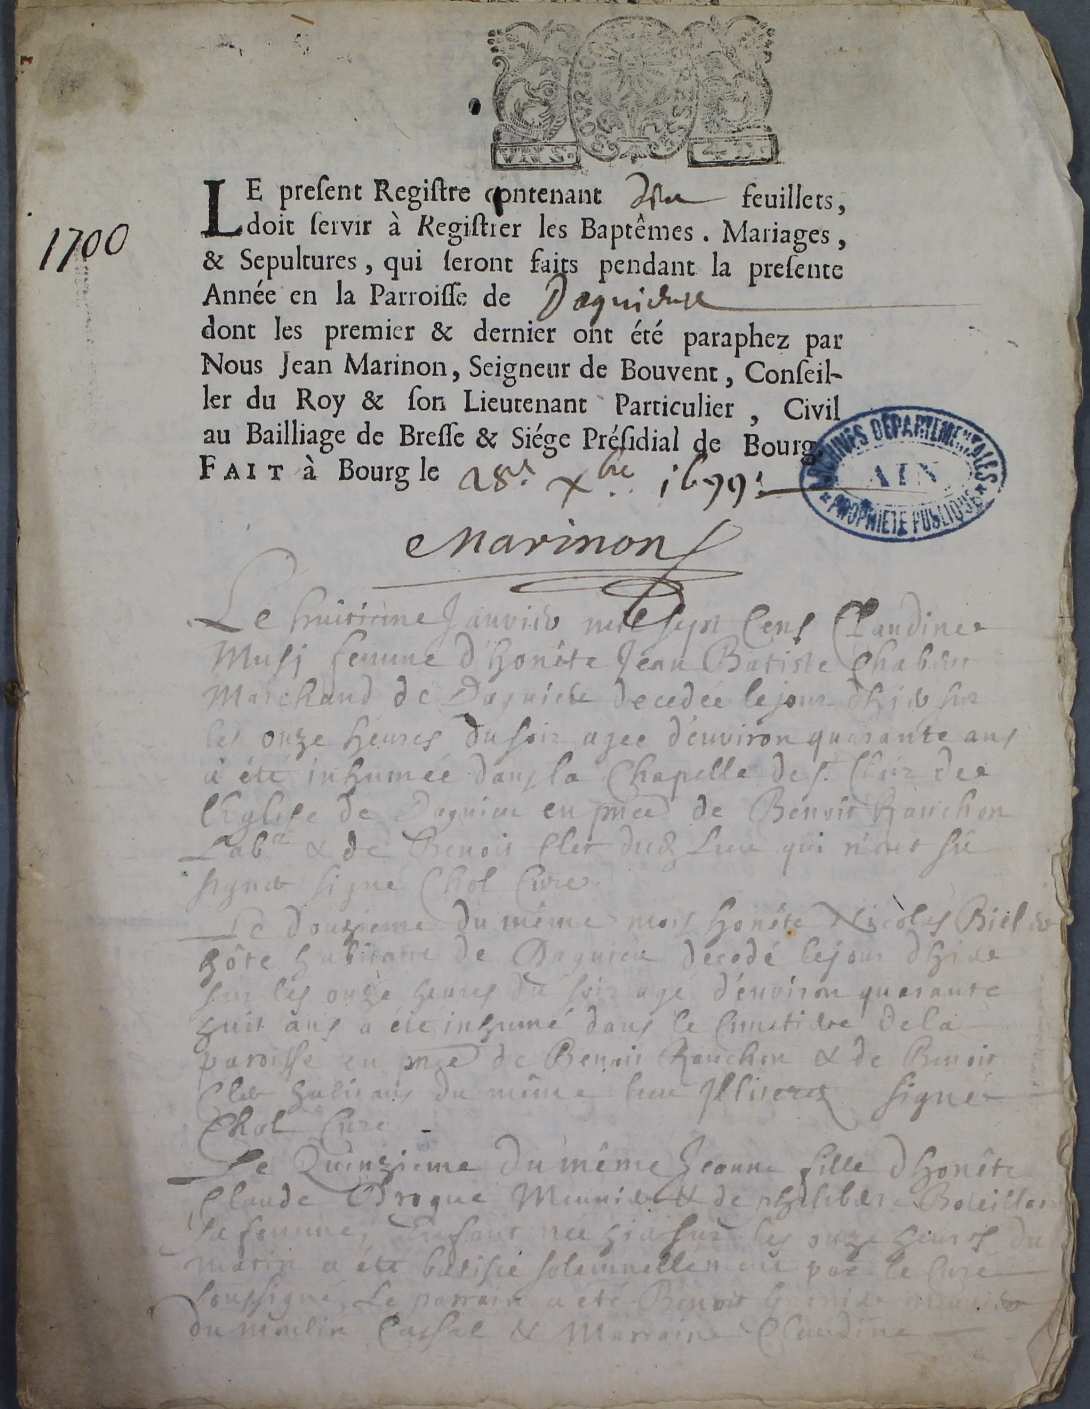 BOURG
BRESSE
VN S.
4 D.
1700
LE present Registre contenant dix feuillets,
doit servir à Registrer les Baptêmes. Mariages,
& Sepultures, qui seront faits pendant la presente
Année en la Parroisse de Dagnieux
dont les premier & dernier ont été paraphez par
Nous Jean Marinon, Seigneur de Bouvent, Conseil-
ler du Roy & son Lieutenant Particulier, Civil
au Bailliage de Bresse & Siége Présidial de Bourg.
FAIT à Bourg le 28e Xbre 1699
ARCHIVES DEPARTEMENTALES
AIN
* PROPRIETE PUBLIQUE *
Marinon
Le huitieme Janvier mil sept Cens Claudine
Musy femme d'honête Jean Batiste Chab
Marchand de Dagnieu decedée le jour d'hier sur
les onze heures du soir agee d'environ quarante ans
a été inhumée dans la Chapelle de St. Clair de
l'Eglise de Dagnieu en pnce de Benoit Ranchon
Labr & de Benoit Clet dud. lieu qui n'ont sû
signer signé Chol Curé
Le douzieme du même mois honête Nicolas Biel
hôte habitant de Dagnieu decedé le jour d'hier
sur les onze heures du soir agé d'environ quarante
huit ans a été inhumé dans le Cimetiere de la
paroisse en pnce de Benoit Ranchon & de Benoit
Clet habitans du même lieu Illiterez signé
Chol Curé
Le Quinzieme du même Jeanne fille d'honête
Claude Drogue Meunier & de philiberte
sa femme, Enfant née hier sur les onze heures du
matin a été batisée solemnellement par le Curé
soussigné, Le parrain a été Benoit
du moulin Cassal & Marraine Claudine